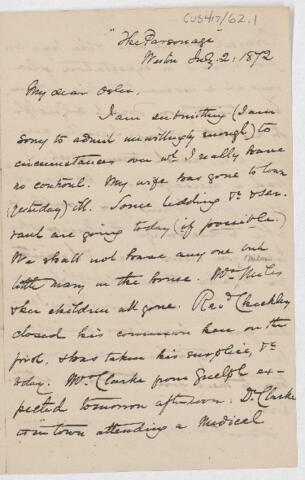 CUS417/62.1
"The Parsonage"
Weston July 2: 1872
My dear Osler,
I am submitting (I am
sorry to admit unwillingly enough) to
circumstances over wh I really have
no controul. My wife has gone to town
(yesterday) ill. Some bedding &c & ser-
vant are going today (if possible.)
We shall not have any one but
little mary in the house. Mrs Miles
& her children all gone. Revd Checkley
closed his common here on the
first, & has taken his surplice, &c
today. Mrs Clarke from Guelph ex-
pected tomorrow afternoon. Dr Clarke
is in town attending a Medical